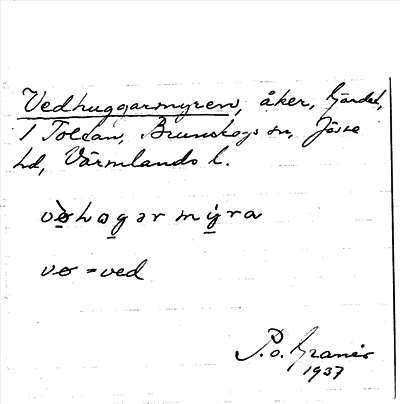 Vedhuggarmyren, åker, Gärdet,
1 Tolean, Brunskogs sn, Jösse
hd, Värmlands l.
vòhogər mýra
vo = ved
P.o. Graner
1937